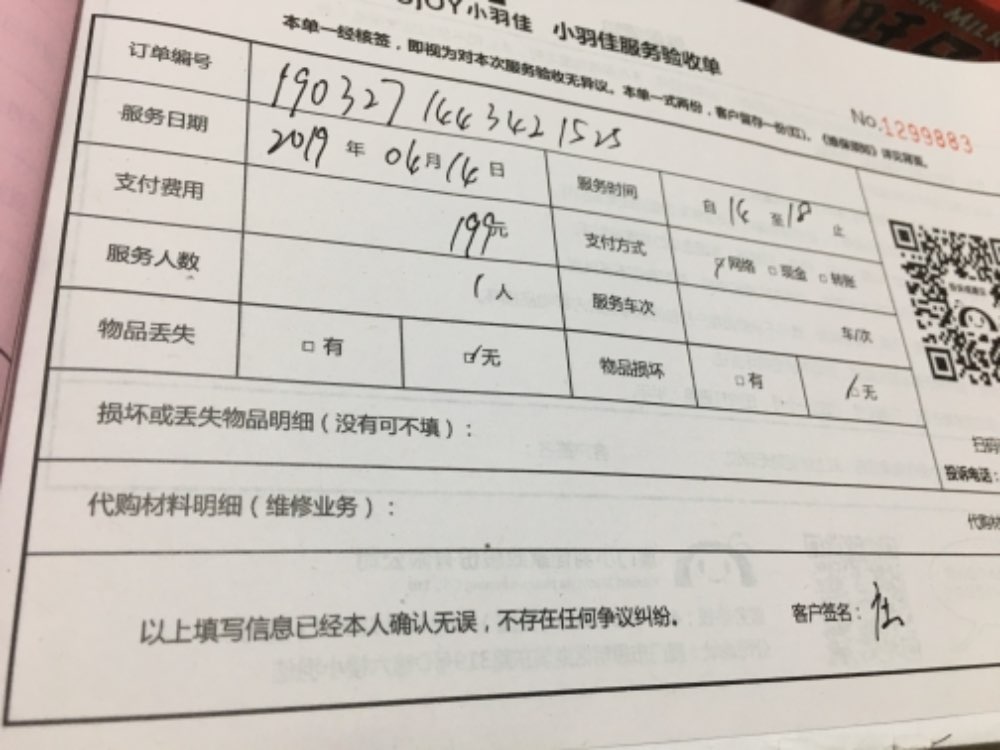 小羽佳 小羽佳服务验收单
本单一经核签，即视为对本次服务验收无异议。本单一式两份，客户留存一份(红)。《维保须知》详见背面。
No.1299883
订单编号 1903271443421525
服务日期 2019 年 04月14日 服务时间 自 14 至 18 止
支付费用 199元 支付方式 网络 □ 现金 □ 转账
服务人数 1人 服务车次 车/次
物品丢失 □ 有 ☑无 物品损坏 □有 ☑无
损坏或丢失物品明细（没有可不填）：
扫码
投诉电话：
代购材料明细（维修业务）：
代购材
以上填写信息已经本人确认无误，不存在任何争议纠纷。 客户签名：